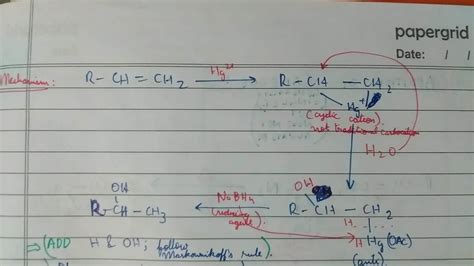 papergrid
Date: / /
Mechanism: R - CH = CH2 Hg2+ R - CH - CH2
Hg+
(cyclic cation)
not traditional carbocation
H2O
OH OH
R-CH-CH3 NaBH4 R - CH - CH2
(reducing agent) H
H Hg(OAc)
(ADD H & OH; follow
Markownikoff's rule)
(anti)